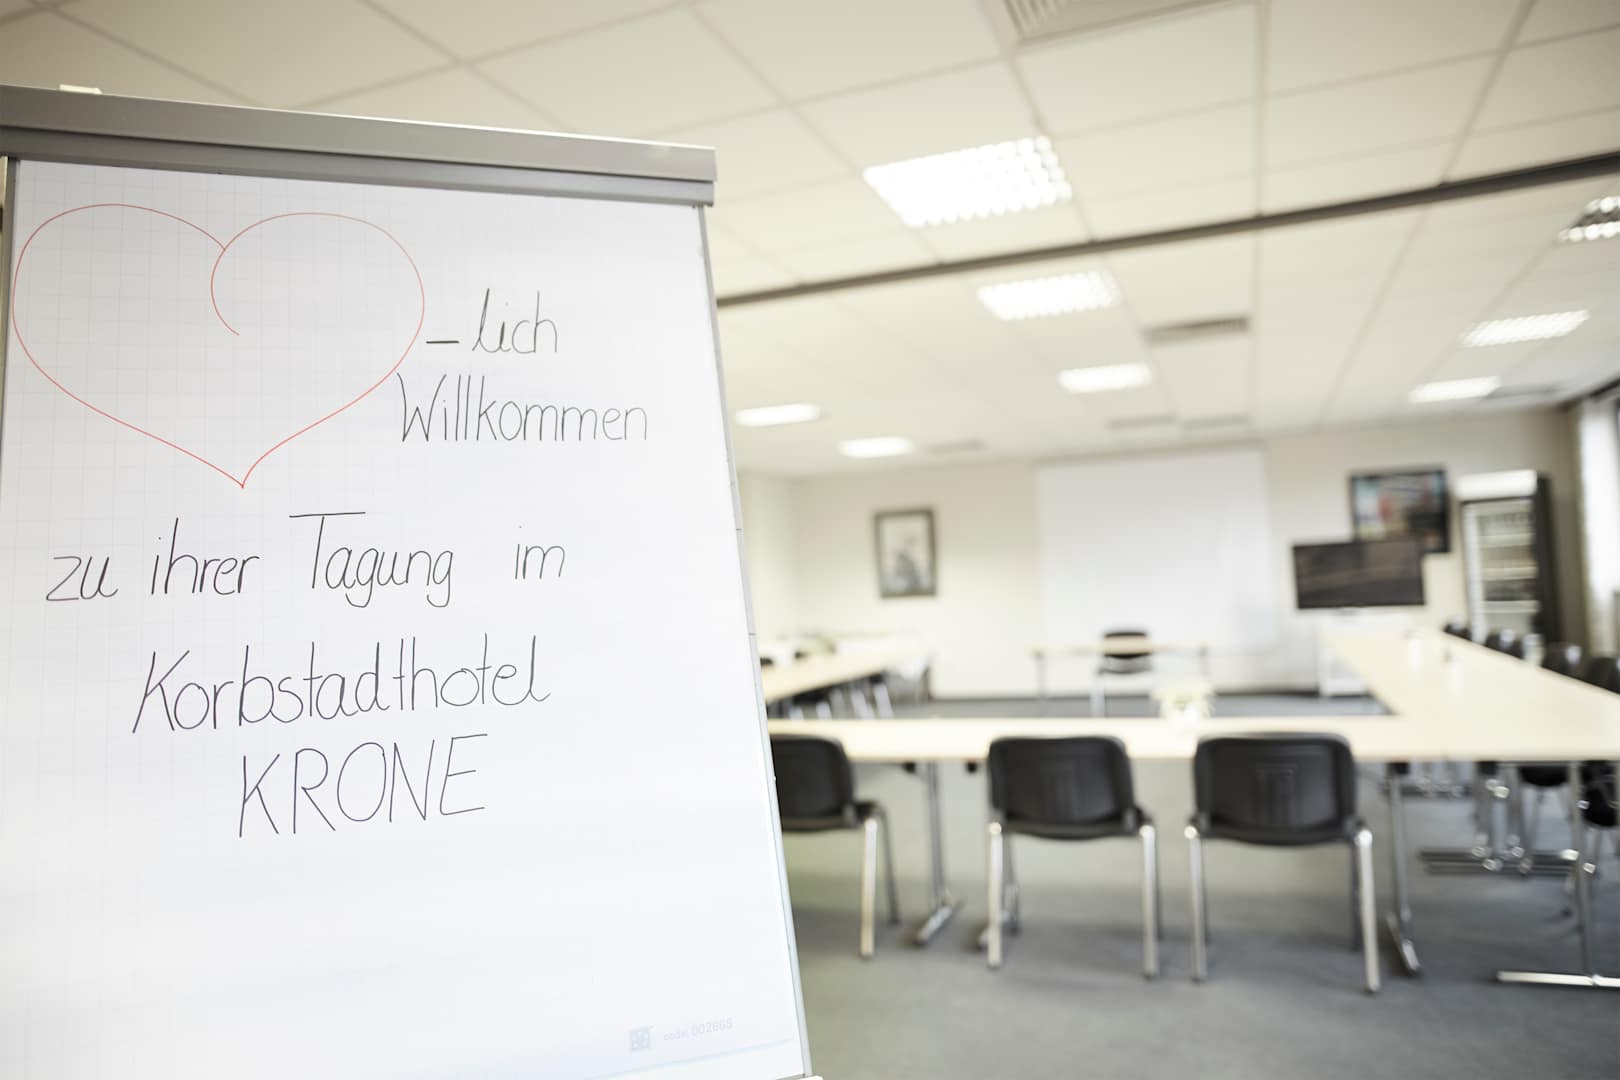 -lich
Willkommen
zu ihrer Tagung im
Korbstadthotel
KRONE
code, 002865